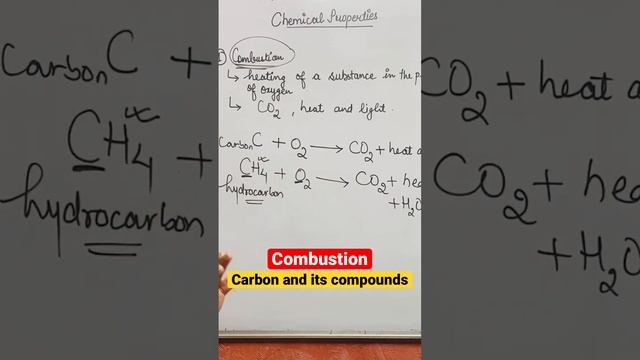 Chemical Properties
Combustion
↳ heating of a substance in the
of oxygen
↳ CO2, heat and light.
Carbon C + O2 → CO2 + heat
CH4 + O2 → CO2 +
hydrocarbon
+ H2O
Combustion
Carbon and its compounds
Carbon C +
CH4 +
hydrocarbon
CO2 + heat
CO2 +
+ H2O